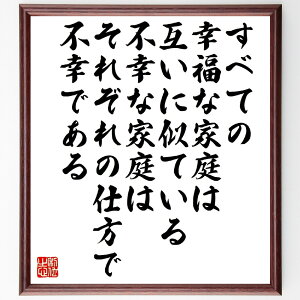 すべての
幸福な家庭は
互いに似ている
不幸な家庭は
それぞれの仕方で
不幸である